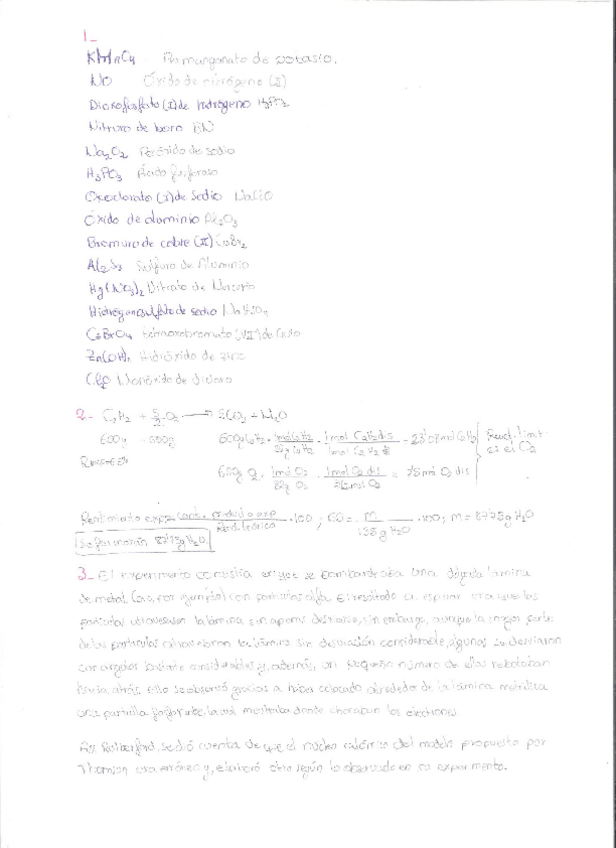 1_
KMnO4 Permanganato de potasio.
NO Óxido de nitrógeno (II)
Dioxofosfato (I) de hidrógeno H3PO2
Nitruro de boro BN
Na2O2 Peróxido de sodio
H3PO3 Ácido fosforoso
Oxoclorato (I) de Sodio NaClO
Óxido de aluminio Al2O3
Bromuro de cobre (II) CuBr2
Al2S3 Sulfuro de Aluminio
Hg(NO3)2 Nitrato de Mercurio
Hidrógenosulfato de sodio NaHSO4
CsBrO4 tetraoxobromato (VII) de Cesio
Zn(OH)2 Hidróxido de zinc
Cl2O Monóxido de dicloro
2- C2H2 + 5/2 O2 → 2CO2 + H2O
600g 600g 600g C2H2 · 1mol C2H2 / 26g C2H2 · 1mol C2H2 dis / 1mol C2H2 = 23'07 mol C2H2 React. limit-
es el O2
600g O2 · 1mol O2 / 32g O2 · 1mol O2 dis / mol O2 = mol O2 dis
Rendimiento exp producto exp / Prod. teórico · 100 ; 60 = m / 135g H2O · 100; m = 87'75g H2O
Se formarán 87'75g H2O
3_ El experimento consistía en que se bombardeaba una delgada lámina
de metal (oro, por ejemplo) con partículas alfa. El resultado a esperar era que las
partículas atravesasen la lámina sin apenas desviarse, sin embargo, aunque la mayor parte
de las partículas atravesaron la lámina sin desviación considerable, algunas se desviaron
con ángulos bastante considerables y, además, un pequeño número de ellas rebotaban
hacia atrás. Ello se observó gracias a haber colocado alrededor de la lámina metálica
una pantalla fosforescente la cual mostraba donde chocaban los electrones.
Así Rutherford, se dió cuenta de que el modelo atómico del modelo propuesto por
Thomson era erróneo y, elaboró otro según lo observado en su experimento.